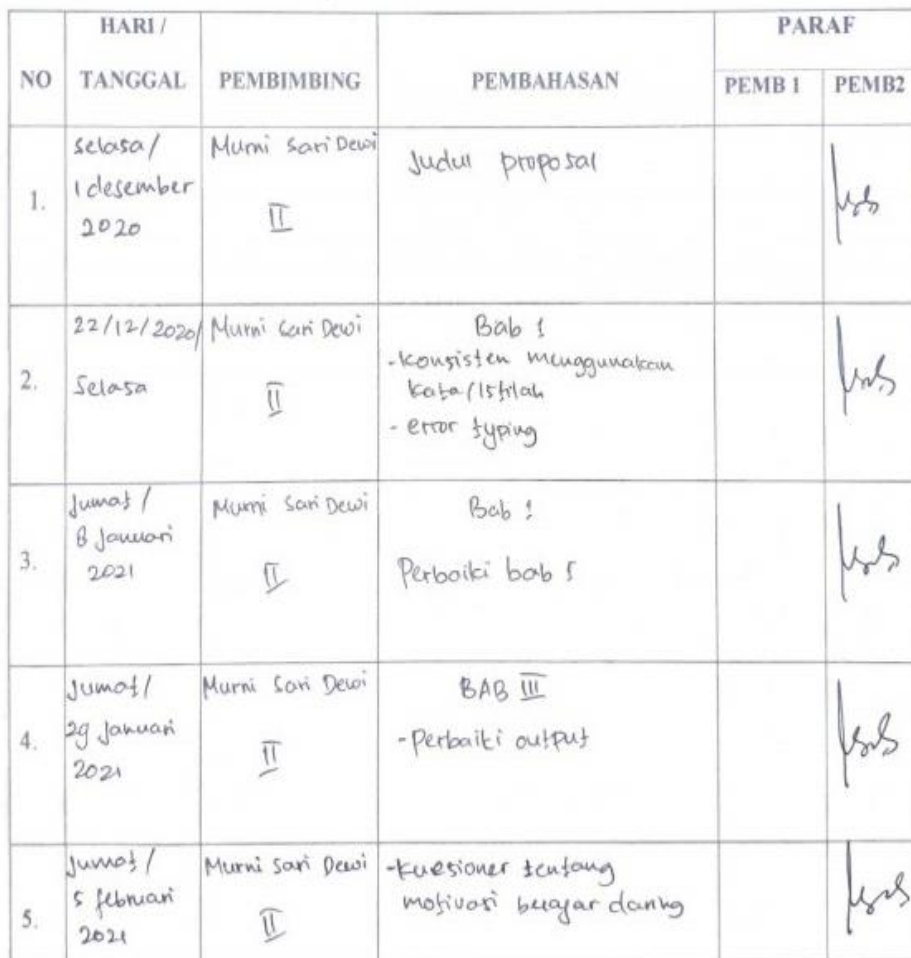 NO
HARI /
TANGGAL
PEMBIMBING
PEMBAHASAN
PARAF
PEMB 1
PEMB2
1.
Selasa /
1 desember
2020
Murni Sari Dewi
II
Judul proposal
2.
22/12/2020/
Selasa
Murni Sari Dewi
II
Bab 1
-konsisten menggunakan
kata/istilah
- error typing
3.
Jumat /
8 Januari
2021
Murni Sari Dewi
II
Bab 1
Perbaiki bab 1
4.
Jumat /
29 Januari
2021
Murni Sari Dewi
II
BAB III
-Perbaiki output
5.
Jumat /
5 februari
2021
Murni Sari Dewi
II
-kuesioner tentang
motivasi belajar daring